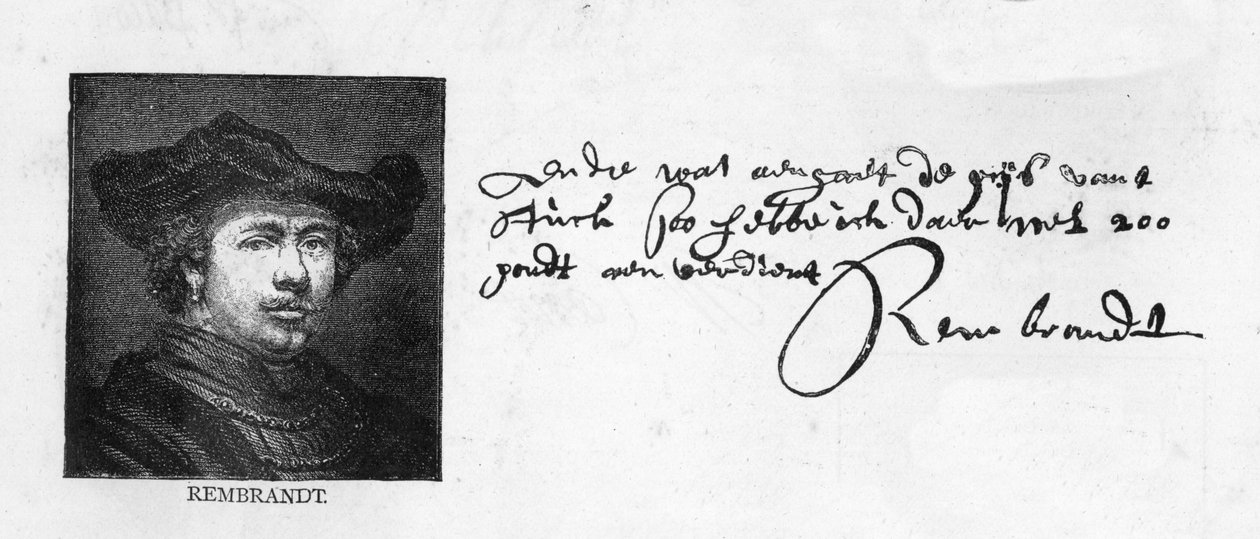 Ende wat aengaet de prijs vant
stuck soo hebbe ick daer wel 200
pondt aen verdient
Rembrandt
REMBRANDT.